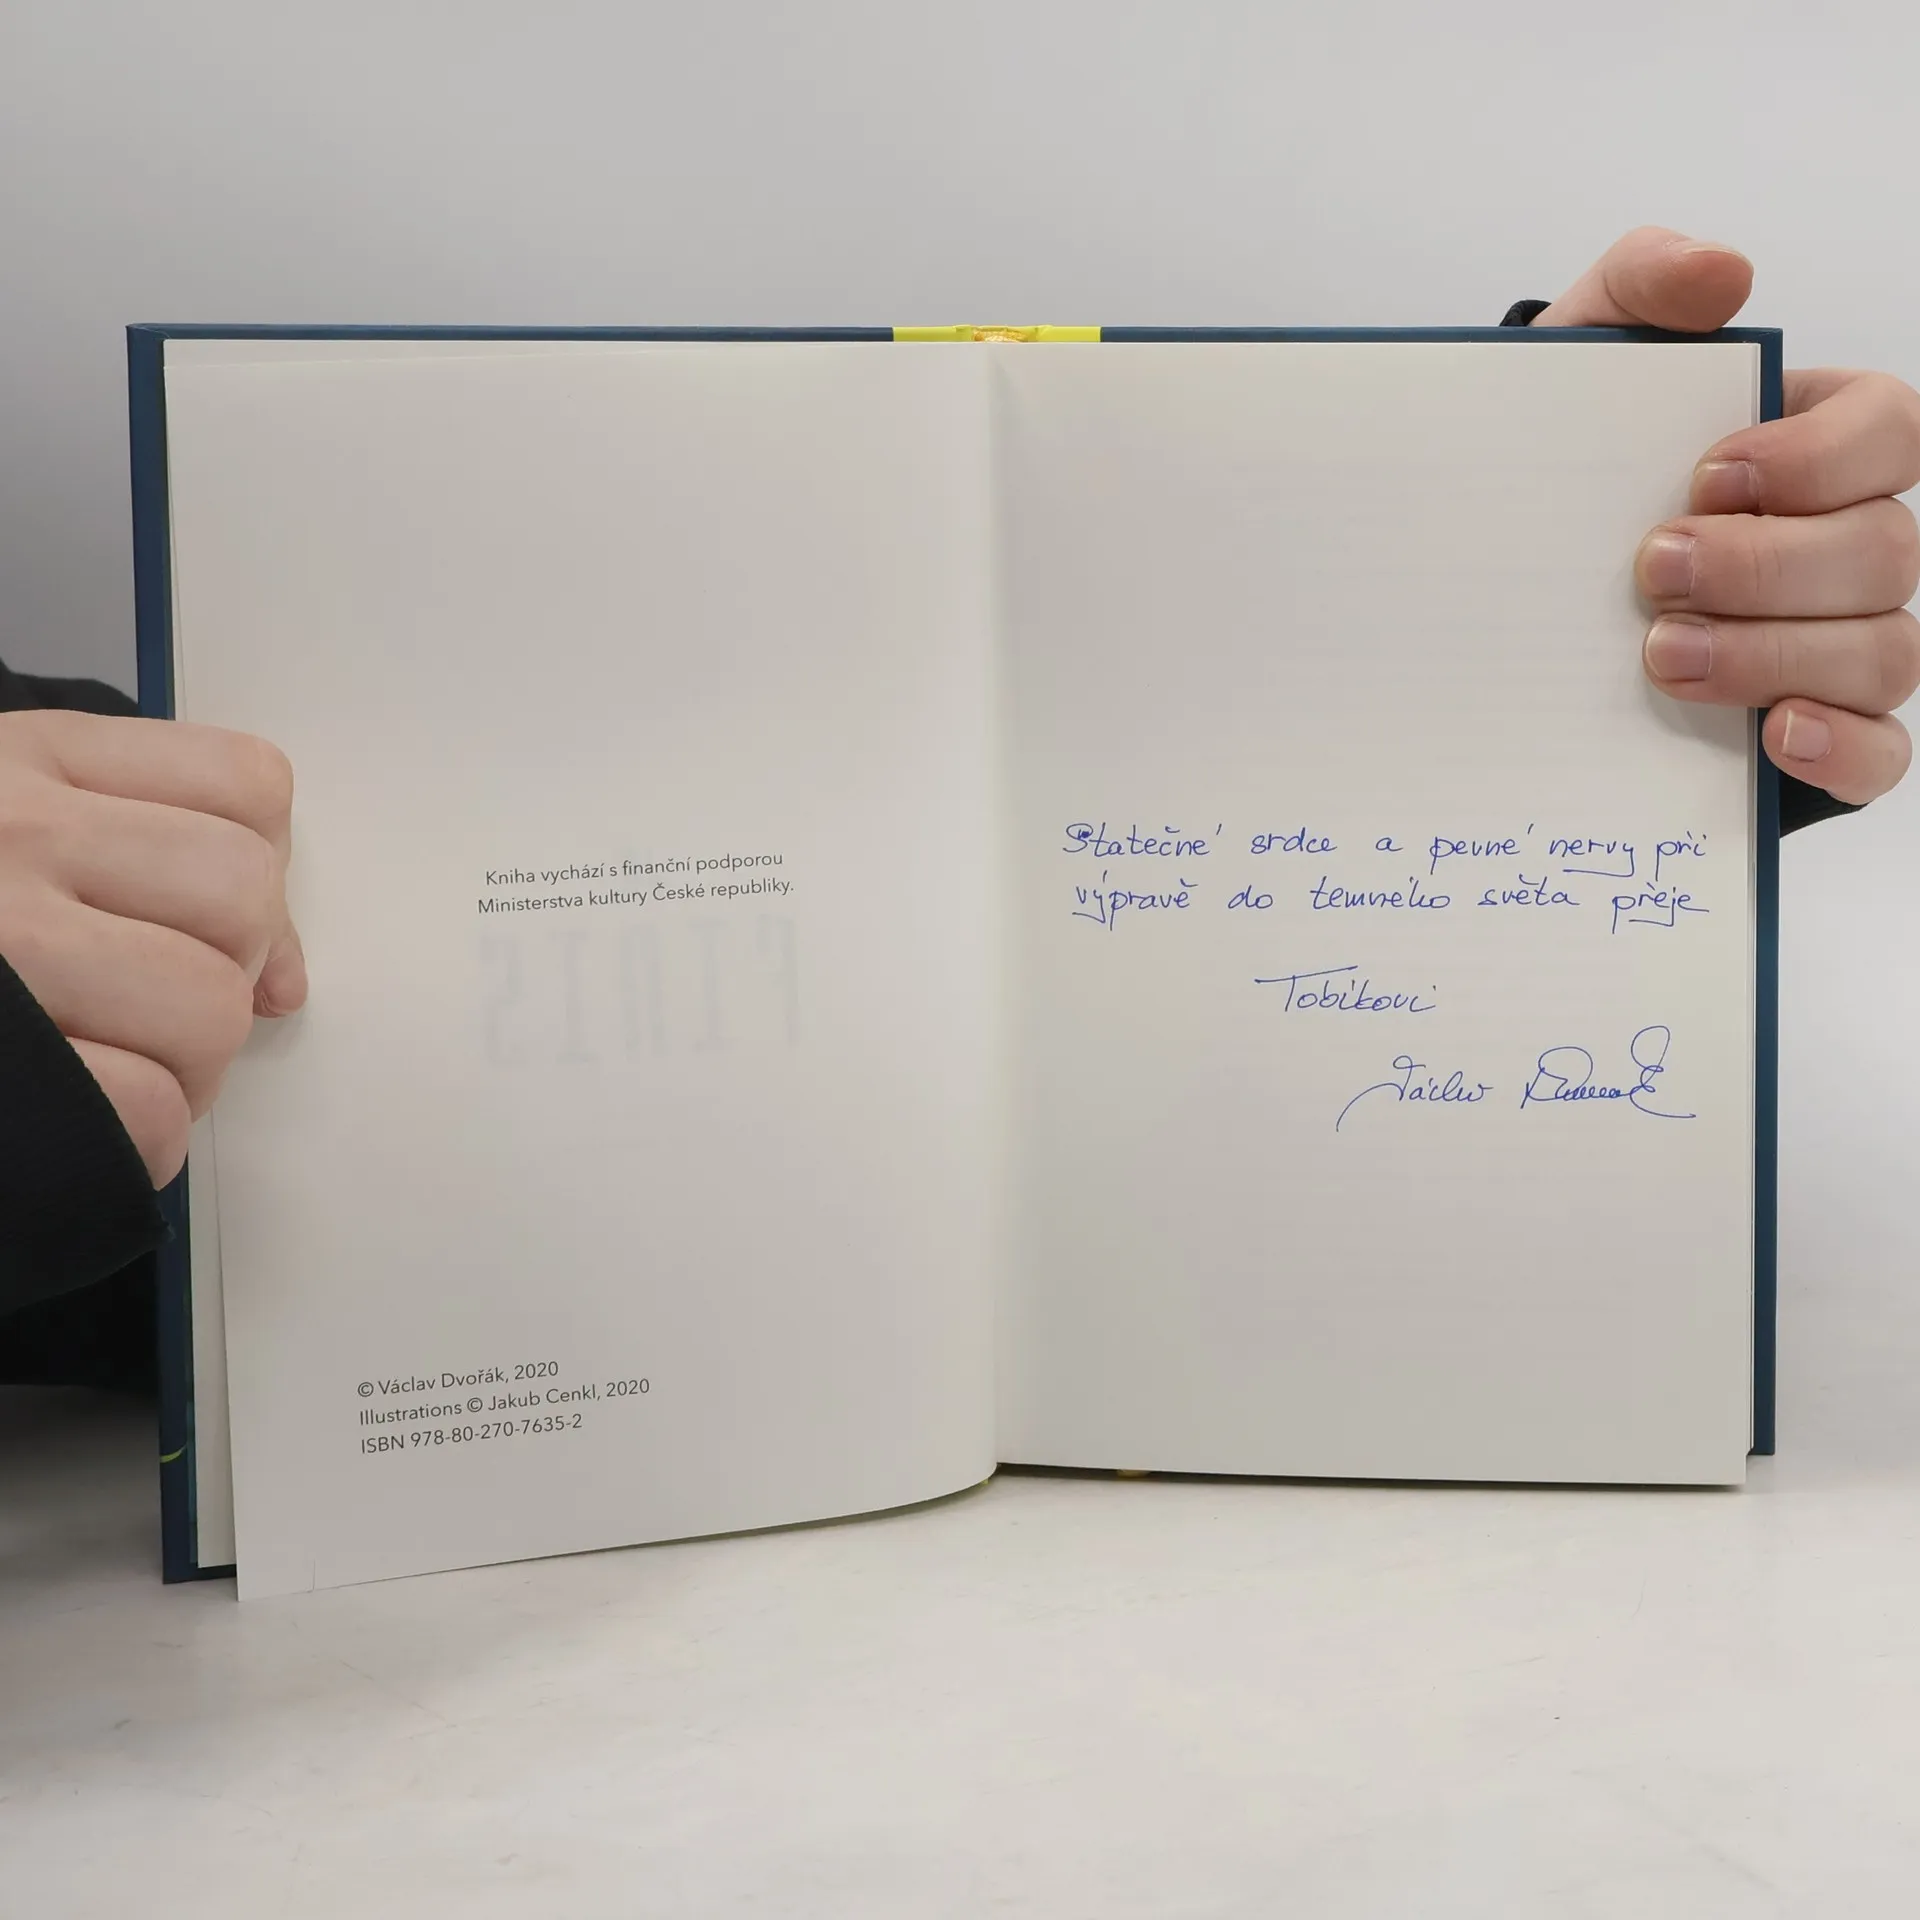 Kniha vychází s finanční podporou
Ministerstva kultury České republiky.
© Václav Dvořák, 2020
Illustrations © Jakub Cenkl, 2020
ISBN 978-80-270-7635-2
Statečné srdce a pevné nervy při
výpravě do temného světa přeje
Tobíkovi
Václav Dvořák